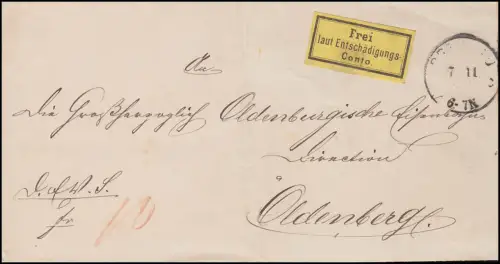 Frei
laut Entschädigungs-
Conto.
7 11
6-7N
An
Die Großherzoglich Oldenburgische Eisenbahn
Direction
Oldenberg